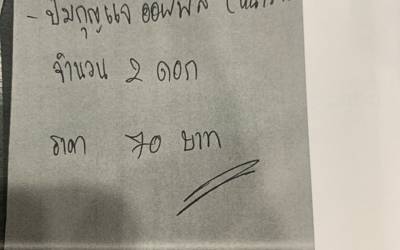 - ปั๊มกุญแจ ออฟฟิส
จำนวน 2 ดอก
ราคา 70 บาท